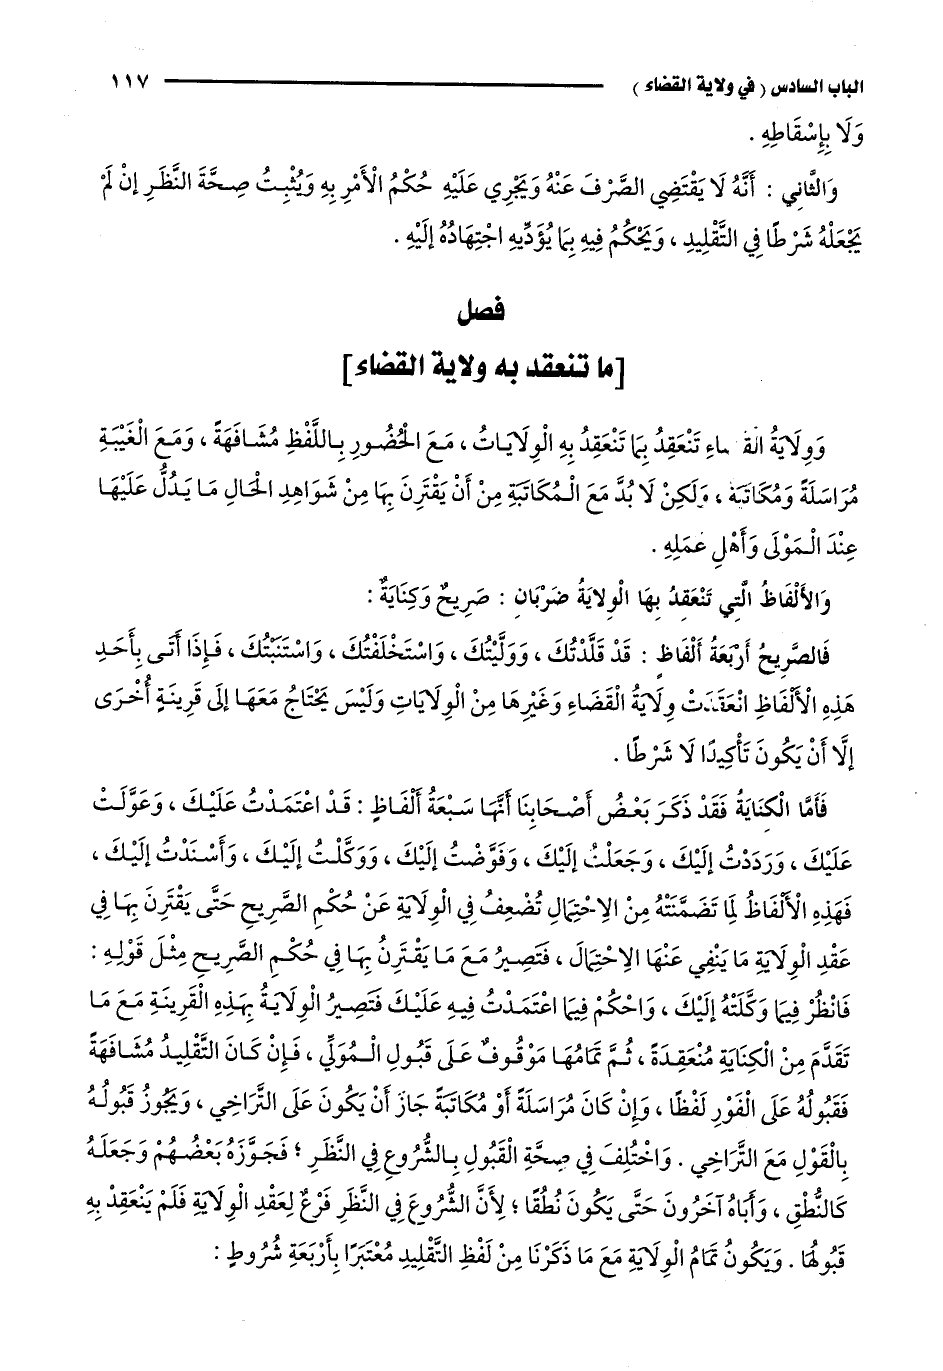 الباب السادس ( في ولاية القضاء ) ١١٧
وَلَا بِإِسْقَاطِهِ .
وَالثَّانِي : أَنَّهُ لَا يَقْتَضِي الصَّرْفَ عَنْهُ وَيَجْرِي عَلَيْهِ حُكْمُ الْأَمْرِ بِهِ وَيُثْبِتُ صِحَّةَ النَّظَرِ إنْ لَمْ
يَجْعَلْهُ شَرْطًا فِي التَّقْلِيدِ ، وَيَحْكُمُ فِيهِ بِمَا يُؤَدِّيهِ اجْتِهَادُهُ إلَيْهِ .
فصل
[ما تنعقد به ولاية القضاء]
وَوِلَايَةُ القضاءِ تَنْعَقِدُ بِمَا تَنْعَقِدُ بِهِ الْوِلَايَاتُ ، مَعَ الْحُضُورِ بِاللَّفْظِ مُشَافَهَةً ، وَمَعَ الْغَيْبَةِ
مُرَاسَلَةً وَمُكَاتَبَةً ، وَلَكِنْ لَا بُدَّ مَعَ الْمُكَاتَبَةِ مِنْ أَنْ يَقْتَرِنَ بِهَا مِنْ شَوَاهِدِ الْحَالِ مَا يَدُلُّ عَلَيْهَا
عِنْدَ الْمَوْلَى وَأَهْلِ عَمَلِهِ .
وَالْأَلْفَاظُ الَّتِي تَنْعَقِدُ بِهَا الْوِلَايَةُ ضَرْبَانِ : صَرِيحٌ وَكِنَايَةٌ :
فَالصَّرِيحُ أَرْبَعَةُ أَلْفَاظٍ : قَدْ قَلَّدْتُكَ ، وَوَلَّيْتُكَ ، وَاسْتَخْلَفْتُكَ ، وَاسْتَنَبْتُكَ ، فَإِذَا أَتَى بِأَحَدِ
هَذِهِ الْأَلْفَاظِ انْعَقَدَتْ وِلَايَةُ الْقَضَاءِ وَغَيْرِهَا مِنْ الْوِلَايَاتِ وَلَيْسَ يَحْتَاجُ مَعَهَا إلَى قَرِينَةٍ أُخْرَى
إلَّا أَنْ يَكُونَ تَأْكِيدًا لَا شَرْطًا .
فَأَمَّا الْكِنَايَةُ فَقَدْ ذَكَرَ بَعْضُ أَصْحَابِنَا أَنَّهَا سَبْعَةُ أَلْفَاظٍ : قَدْ اعْتَمَدْتُ عَلَيْكَ ، وَعَوَّلَتْ
عَلَيْكَ ، وَرَدَدْتُ إلَيْكَ ، وَجَعَلْتُ إلَيْكَ ، وَفَوَّضْتُ إلَيْكَ ، وَوَكَّلْتُ إلَيْكَ ، وَأَسْنَدْتُ إلَيْكَ ،
فَهَذِهِ الْأَلْفَاظُ لِمَا تَضَمَّنَتْهُ مِنْ الِاحْتِمَالِ تُضْعِفُ فِي الْوِلَايَةِ عَنْ حُكْمِ الصَّرِيحِ حَتَّى يَقْتَرِنَ بِهَا فِي
عَقْدِ الْوِلَايَةِ مَا يَنْفِي عَنْهَا الِاحْتِمَالَ ، فَتَصِيرُ مَعَ مَا يَقْتَرِنُ بِهَا فِي حُكْمِ الصَّرِيحِ مِثْلَ قَوْلِهِ :
فَانْظُرْ فِيمَا وَكَّلَتْهُ إلَيْكَ ، وَاحْكُمْ فِيمَا اعْتَمَدْتُ فِيهِ عَلَيْكَ فَتَصِيرُ الْوِلَايَةُ بِهَذِهِ الْقَرِينَةِ مَعَ مَا
تَقَدَّمَ مِنْ الْكِنَايَةِ مُنْعَقِدَةً ، ثُمَّ تَمَامُهَا مَوْقُوفٌ عَلَى قَبُولِ الْمُوَلِّي ، فَإِنْ كَانَ التَّقْلِيدُ مُشَافَهَةً
فَقَبُولُهُ عَلَى الْفَوْرِ لَفْظًا ، وَإِنْ كَانَ مُرَاسَلَةً أَوْ مُكَاتَبَةً جَازَ أَنْ يَكُونَ عَلَى التَّرَاخِي ، وَيَجُوزُ قَبُولُهُ
بِالْقَوْلِ مَعَ التَّرَاخِي . وَاخْتُلِفَ فِي صِحَّةِ الْقَبُولِ بِالشُّرُوعِ فِي النَّظَرِ ؛ فَجَوَّزَهُ بَعْضُهُمْ وَجَعَلَهُ
كَالنُّطْقِ ، وَأَبَاهُ آخَرُونَ حَتَّى يَكُونَ نُطْقًا ؛ لِأَنَّ الشُّرُوعَ فِي النَّظَرِ فَرْعٌ لِعَقْدِ الْوِلَايَةِ فَلَمْ يَنْعَقِدْ بِهِ
قَبُولُهَا . وَيَكُونُ تَمَامُ الْوِلَايَةِ مَعَ مَا ذَكَرْنَا مِنْ لَفْظِ التَّقْلِيدِ مُعْتَبَرًا بِأَرْبَعَةِ شُرُوطٍ :